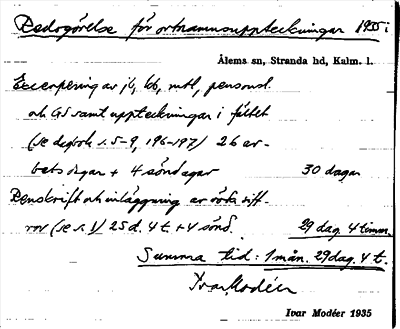 Redogörelse för ortnamnsuppteckningar 1935 i
Ålems sn, Stranda hd, Kalm. l.
Excerpering av jb, kb, mtl, personl.
och GS samt uppteckningar i fältet
(se dagbok s. 5-9, 196-197) 26 ar-
betsdagar + 4 söndagar 30 dagar
Renskrift och inläggning av röda siff-
ror (se s. 1) 25 d. 4 t. + 4 sönd. 29 dag. 4 timm.
Summa tid: 1 mån. 29 dag. 4 t.
Ivar Modéer
Ivar Modéer 1935